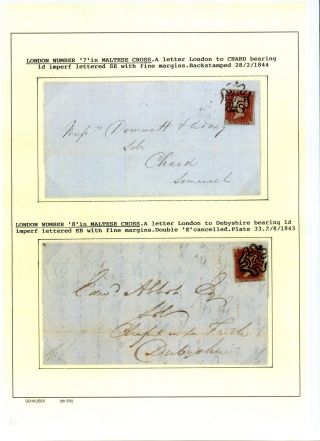 LONDON NUMBER '7'in MALTESE CROSS.A letter London to CHARD bearing
1d imperf lettered SE with fine margins.Backstamped 28/2/1844
Chard
Somerset
LONDON NUMBER '8'in MALTESE CROSS.A letter London to Debyshire bearing 1d
imperf lettered EB with fine margins.Double 'E'cancelled.Plate 33.2/8/1843
Edwd Abbot Esq
Derbyshire
SCHAUBEK